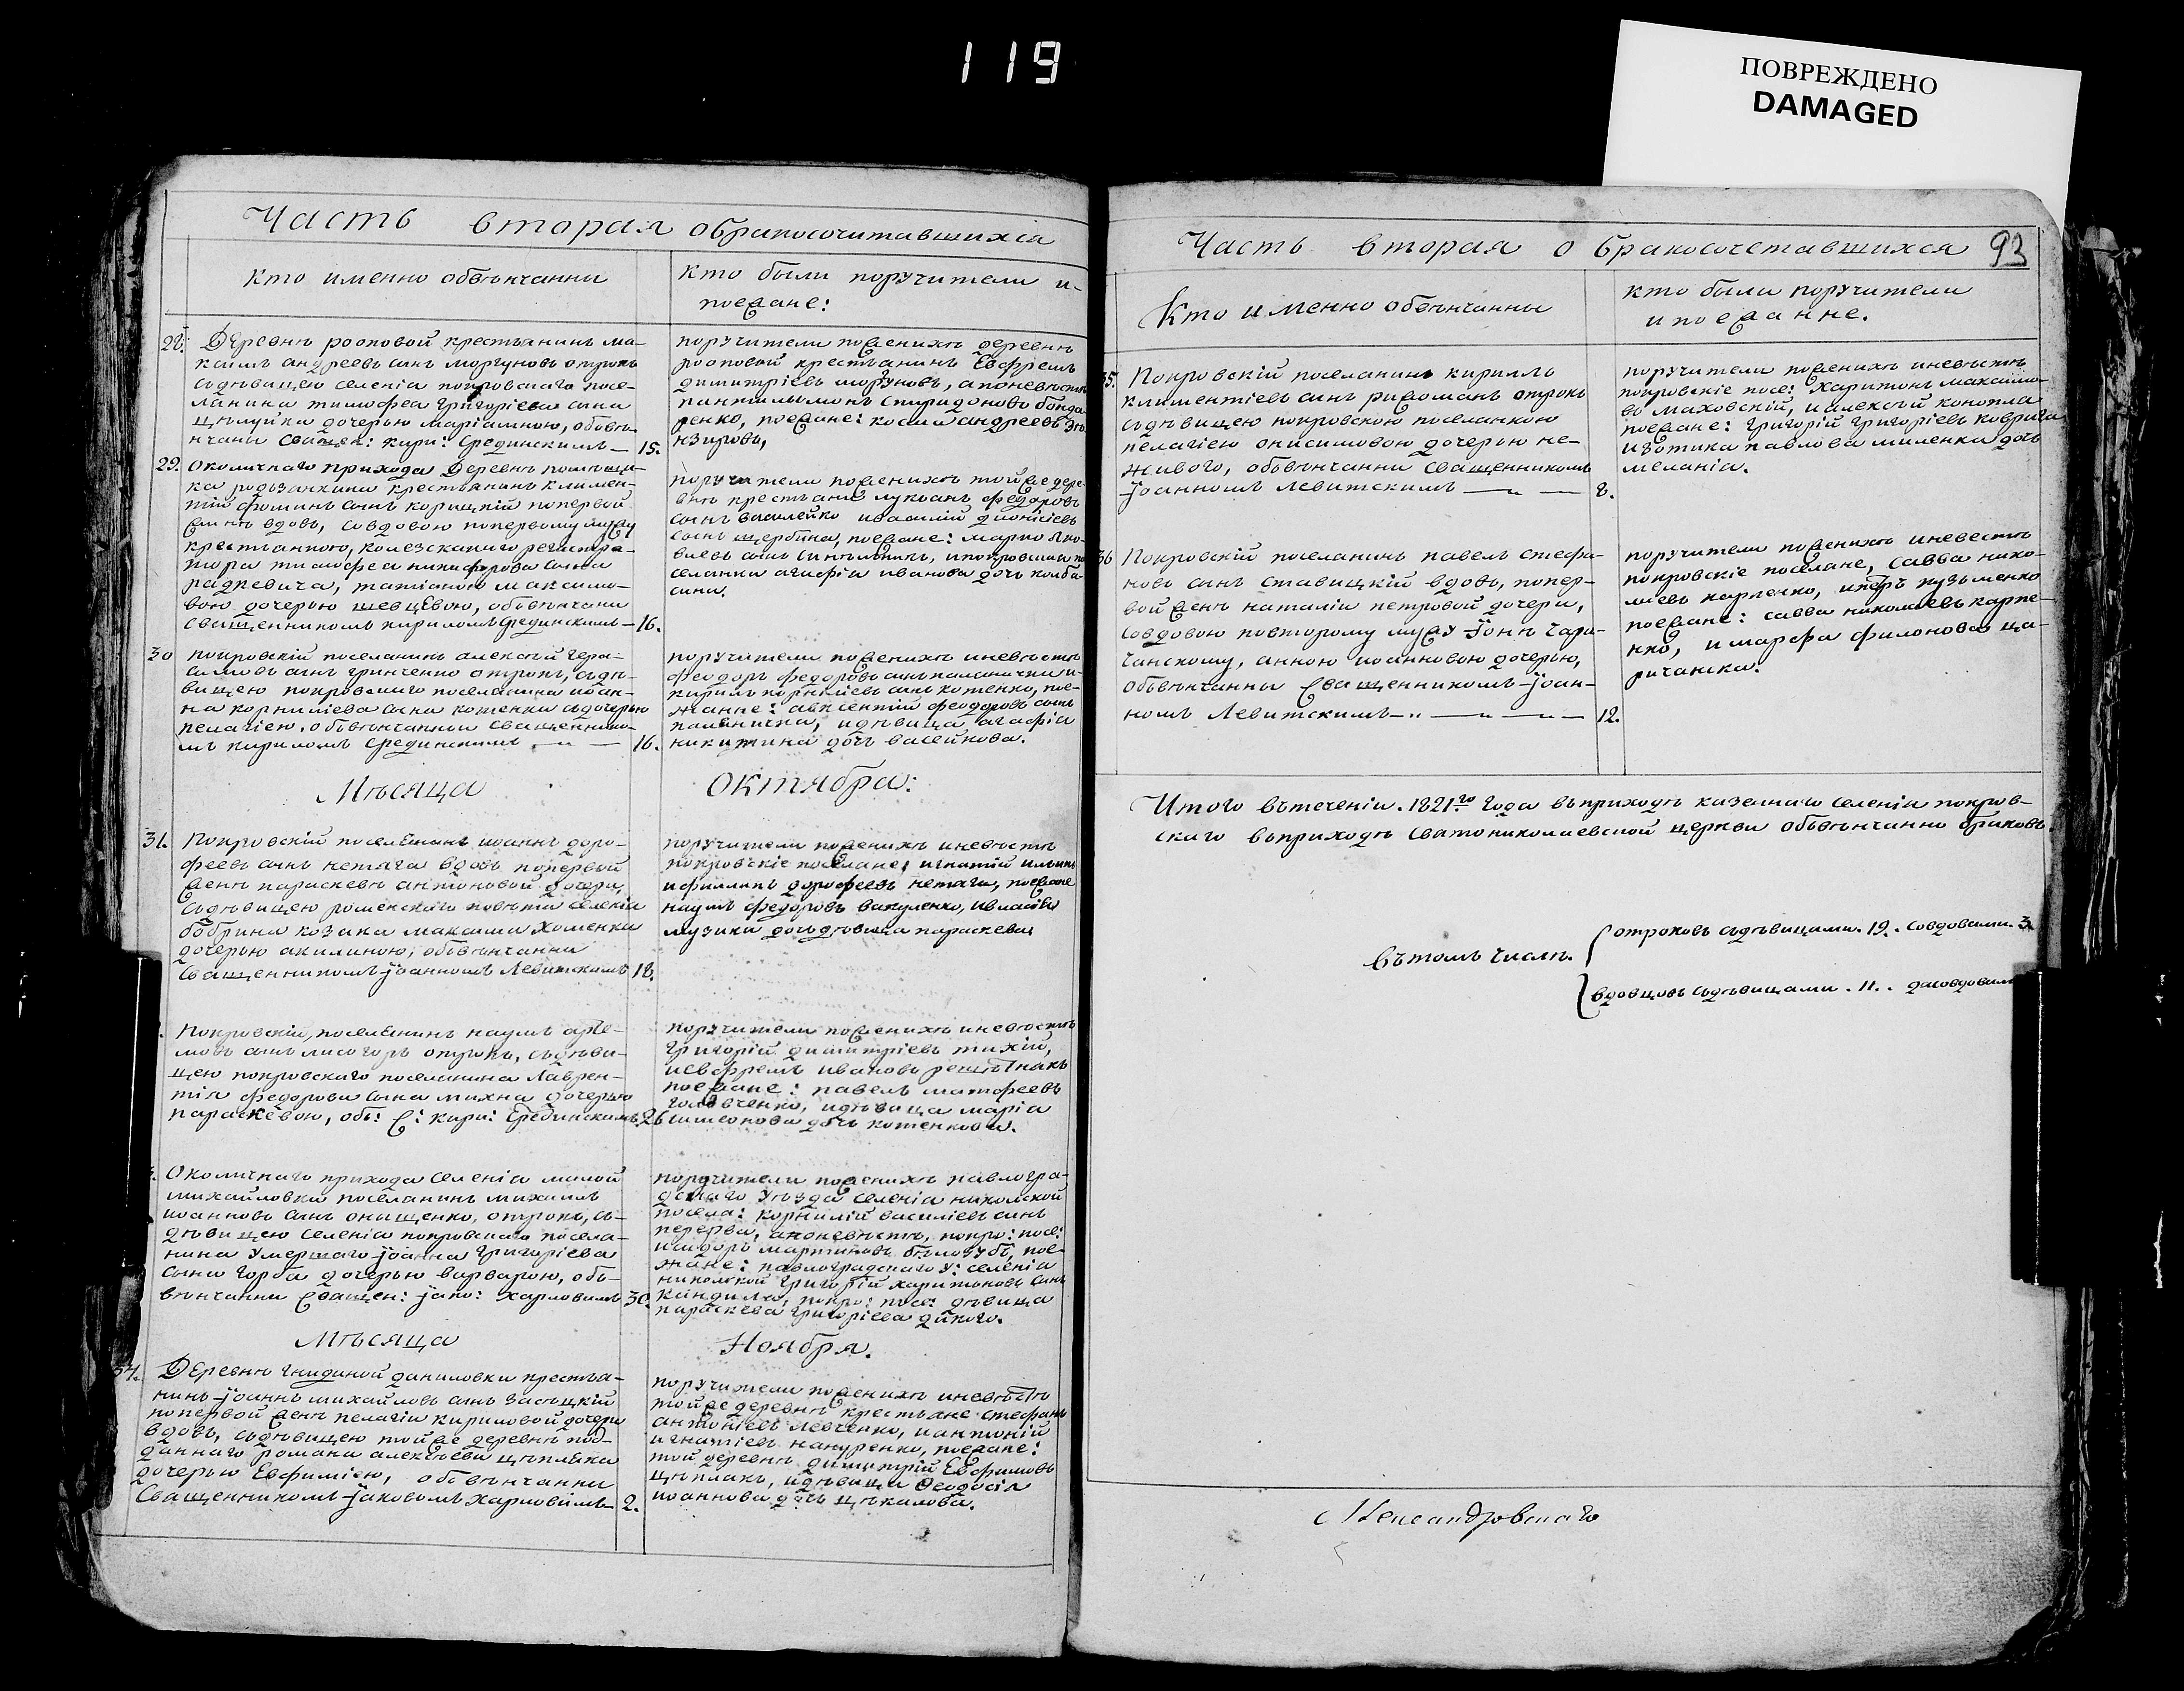 119
ПОВРЕЖДЕНО
DAMAGED
Часть вторая обракосочитавшихся
кто именно обвѣнчанны
кто были поручители и
поезжане:
28. Деревнѣ рооповой крестьянинъ ма-
каимъ андреевъ сынъ моргуновъ отрокъ
съдѣвицею селенія покровскаго посе-
ланина тимофеа григоріева сына
дочерью маріамною, обвѣ-
нчани Священ: кири: Срединскимъ 15.
поручители поженихѣ деревнѣ
рооповой крестьанинъ Евфремъ
димитріевъ моргуновъ, апоневѣстѣ
пантилимонъ спиридоновъ бонда-
ренко, поезжане: косма андреевъ
29. Околичнаго прихода Деревнѣ помѣщи-
ка родзанкина крестьянинъ климен-
тій фоминъ сынъ корицкій попервой
женѣ вдовъ, совдовою попервому мужу
крестьанкою, колезскаго регистра-
тора тимофеа никифорова сына
радкевича, татіаною максимо-
вою дочерью шевцевою, обвѣнчани
священникомъ кириломъ Срединскимъ 16.
поручители поженихѣ тойже дере-
внѣ крестьане лукіанъ федоровъ
сынъ василейко ивасилій діонісіевъ
сынъ щербина, поезжане: марко яко-
влевъ сынъ синельникъ, ипокровская по-
селянка агафіа иванова дочь колба-
сина.
30 покровскій поселанинъ алексѣй гера-
симовъ сынъ гринченко отрокъ, съдѣ-
вицею покровскаго поселанина иоан-
на корниліева сына котенка съдочерью
пелагіею, обвѣнчанни священнико-
мъ кириломъ Срединскимъ 16.
поручители поженихѣ иневѣстѣ
феодоръ федоровъ сынъ паламачка и
кирилъ корниліевъ сынъ котенко, пое-
жанне: авксентій феодоровъ сынъ
идѣвица агафіа
никитина дочь васейкова.
Мѣсяца
Октября:
31. Покровскій поселенинъ иоаннъ доро-
феевъ сынъ нетяга вдовъ попервой
женѣ параскевѣ антоновой дочери,
съдѣвицею роменскаго повѣта селенія
бобрика козака максима хоменка
дочерью акилиною, обвѣнчанни
священникомъ іоанномъ Левитскимъ 18.
поручители поженихѣ иневѣстѣ
покровскіе поселане, игнатій ильинъ
ифиллипъ дорофеевъ нетяги, поезжане
наумъ федоровъ вакуленко, ивласіа
музики дочь дѣвица параскева
Покровскій, поселенинъ наумъ арте-
мовъ сынъ лисогоръ отрокъ, съдѣви-
цею покровскаго поселанина Лаврен-
тія федорова сына михна дочерью
параскевою, обв: С: кири: Срединскимъ. 26
поручители поженихѣ иневѣстѣ
григорій димитріевъ тихій,
иевфремъ ивановъ решетнакъ
поезжане: павелъ матфеевъ
головченко, идѣвица маріа
симеонова дочь котенкова.
Околичнаго прихода селеніа малой
михайловки поселанинъ михаилъ
иоанновъ сынъ онищенко, отрокъ, съ-
дѣвицею селенія покровскаго посела-
нина умершаго іоанна григоріева
сына горба дочерью варварою, обв-
вѣнчанни священ: јако: харловимъ 30.
поручители поженихѣ павлогра-
дскаго уѣзда селеніа николской
посела: корнилій василіевъ сынъ
перерва, апоневѣстѣ, покро: посе:
исидоръ мартиновъ бѣлозубъ, пое-
жане: павлоградскаго у: селеніа
николской григорій харитоновъ сынъ
кандила, покро: посе: дѣвица
параскева григоріева дикого.
Мѣсяца
Ноября.
34. Деревнѣ гнидиной даниловки крестьа-
нинъ іоаннъ михайловъ сынъ засецкій
попервой женѣ пелагіи кириловой дочери
вдовъ, съдѣвицею тойже деревнѣ под-
даннаго романа алексѣева цеплака
дочерью Евфиміею, обвѣнчанни
Священникомъ јаковомъ харловимъ 2.
поручители поженихѣ иневѣстѣ
тойже деревнѣ крестьане стефанъ
антоніевъ левченко, иантоній
игнатіевъ поезжане:
той деревнѣ димитрій Евфимовъ
цеплакъ, идѣвица Феодосіа
иоаннова дочь цекалова.
Часть вторая о бракосочетавшихся 93
Кто именно обвѣнчанны
кто были поручители
и поезжанне.
35. Покровскій поселанинъ кириллъ
климентіевъ сынъ отрокъ
съдѣвицею покровскою поселанкою
пелагіею онисимовою дочерью не-
живого, обвѣнчанни священникомъ
іоанномъ Левитскимъ — „ — 8.
поручители поженихѣ иневѣстѣ
покровскіе посе: Харитонъ максимо-
въ Маховскій, иалексѣй конопла
поезжане: григорій григоріевъ коврига
изотика павлова миленка дочь
меланіа.
36 Покровскій поселанинъ павелъ стефа-
новъ сынъ ставицкій вдовъ, попер-
вой женѣ наталіи петровой дочери,
совдовою повторому мужу іонѣ цари-
чанскому, анною иоанновою дочерью,
обвѣнчанны Священникомъ іоан-
номъ Левитскимъ — „ — „ — „ — 12.
поручители поженихѣ иневестѣ
покровскіе поселане, савва нико-
лаевъ карпенко, ипетръ кузьменко
поезжане: савва николаевъ карпе-
нко, имарфа филонова ца-
ричанска.
Итого втеченіи. 1821го года въприходѣ казеннаго селенія покров-
скаго въприходѣ Святониколаевской церкви обвѣнчанно браковъ
Вътомъ числѣ.
отроковъ съдѣвицами. 19. совдовами. 3
вдовцовъ съдѣвицами. 11. . дасовдовами
Александровскаго